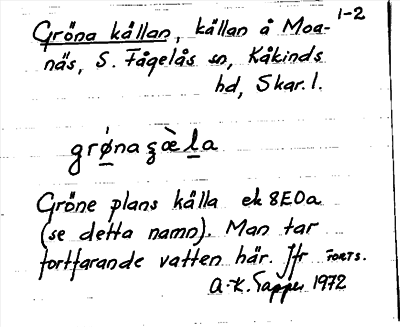 1-2
Gröna källan, källan å Moa-
näs, S. Fågelås sn, Kåkinds
hd, Skar. l.
grø̀na ʒæ̀la
Gröne plans källa ek 8E0a
(se detta namn). Man tar
fortfarande vatten här. Jfr FORTS.
A.-K. Tapper 1972